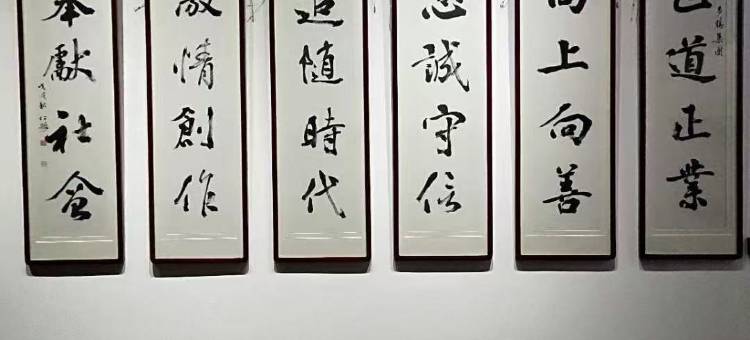 道正業
集團
向上向善
誠守信
追隨時代
情創作
奉獻社會